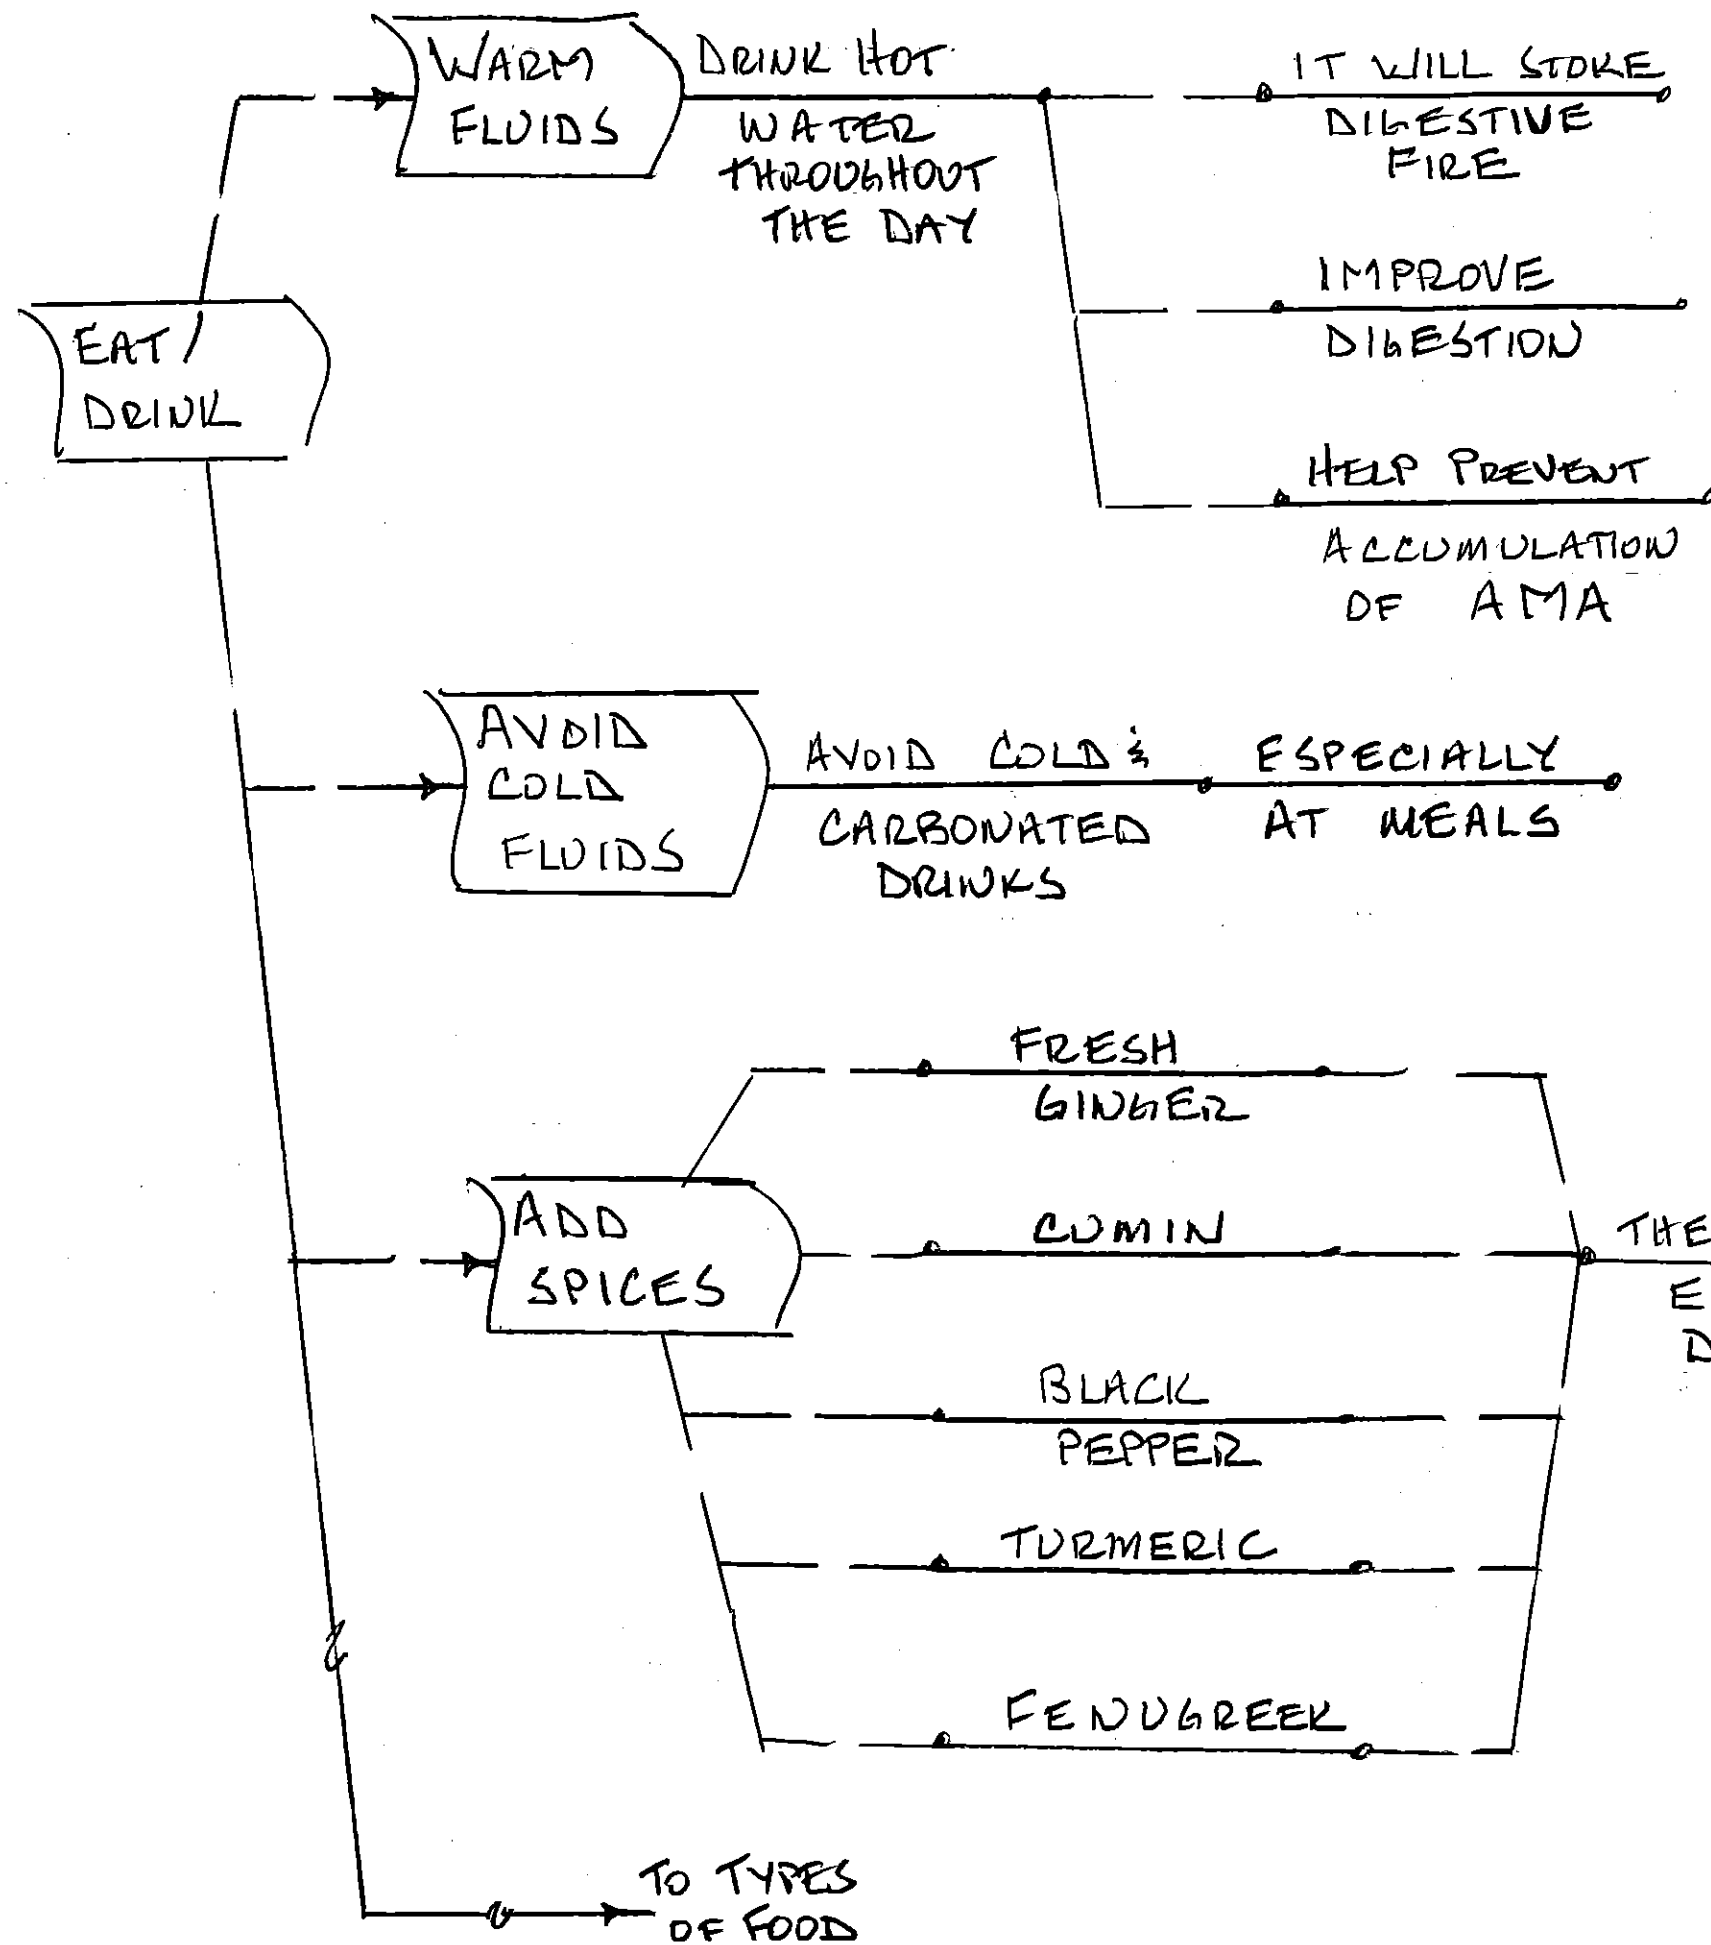 WARM
FLUIDS
DRINK HOT
WATER
THROUGHOUT
THE DAY
IT WILL STOKE
DIGESTIVE
FIRE
IMPROVE
DIGESTION
HELP PREVENT
ACCUMULATION
OF AMA
EAT /
DRINK
AVOID
COLD
FLUIDS
AVOID COLD &
CARBONATED
DRINKS
ESPECIALLY
AT MEALS
ADD
SPICES
FRESH
GINGER
CUMIN
BLACK
PEPPER
TURMERIC
FENUGREEK
THE
E
D
TO TYPES
OF FOOD